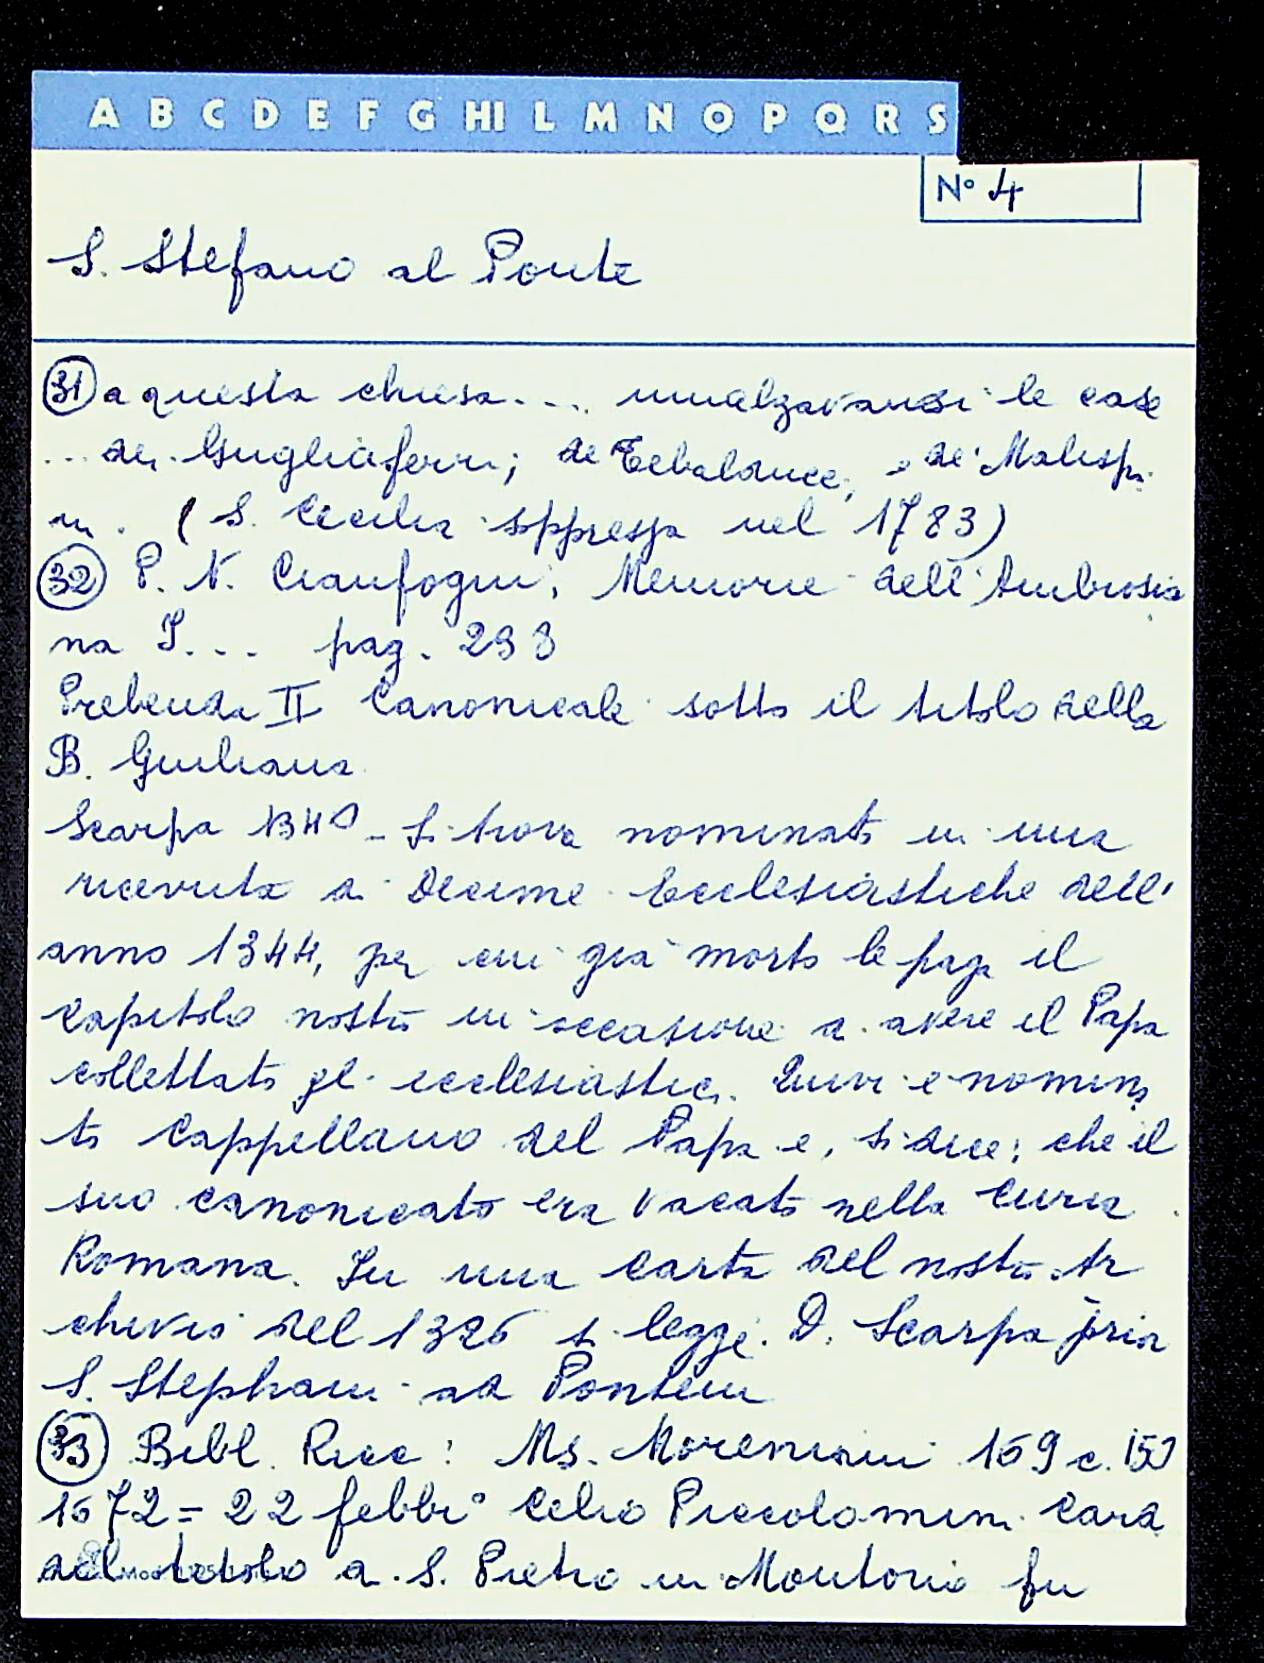 A B C D E F G HI L M N O P Q R S
N° 4
S. Stefano al Ponte
31 a questa chiesa.... innalzavansi le case
... dei Gugliaferri; de Tebalducci, e de' Malespi
ni. (S. Cecilia soppressa nel 1783)
32 P. N. Cianfogni, Memorie dell'Ambrosia
na I... pag. 293
Prebenda II Canonicale sotto il titolo della
B. Giuliana
Scarpa 1340 - Si trova nominato in una
ricevuta di Decime Ecclesiastiche dell'
anno 1344, per cui già morto le paga il
Capitolo nostro in occasione di avere il Papa
collettato gl. ecclesiastici. Quivi è nomina
to Cappellano del Papa e, si dice: che il
suo canonicato era vacato nella Curia
Romana. In una carta del nostro Ar
chivio del 1326 si legge. D. Scarpa prior
S. Stephani ad Pontem
33 Bibl. Ricc: Ms. Moreniani 169 c. 150
1672 = 22 febbr° Celio Piccolomini Card
del titolo di S. Pietro in Montorio fu